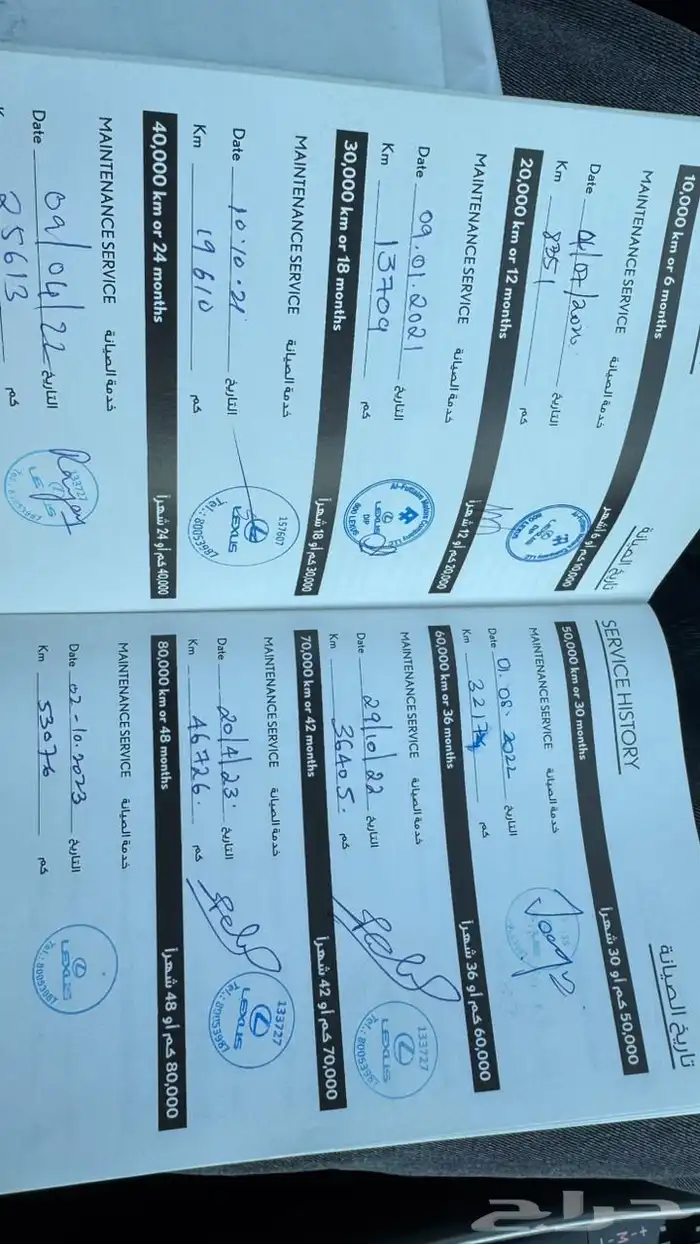 10,000 km or 6 months 10,000 كم أو 6 أشهر
MAINTENANCE SERVICE خدمة الصيانة
Date التاريخ
Km 8351 كم
20,000 km or 12 months 20,000 كم أو 12 شهراً
MAINTENANCE SERVICE خدمة الصيانة
Date 09.01.2021 التاريخ
Km 13709 كم
LEXUS
30,000 km or 18 months 30,000 كم أو 18 شهراً
MAINTENANCE SERVICE خدمة الصيانة
Date 10.10.21 التاريخ
Km 19610 كم
157607
LEXUS
Tel.: 80053987
40,000 km or 24 months 40,000 كم أو 24 شهراً
MAINTENANCE SERVICE خدمة الصيانة
Date 09/04/22 التاريخ
25613 كم
133727
تاريخ الصيانة
SERVICE HISTORY تاريخ الصيانة
50,000 km or 30 months 50,000 كم أو 30 شهراً
MAINTENANCE SERVICE خدمة الصيانة
Date 01.08.2022 التاريخ
Km كم
60,000 km or 36 months 60,000 كم أو 36 شهراً
MAINTENANCE SERVICE خدمة الصيانة
Date 29/10/22 التاريخ
Km 36405. كم
133727
LEXUS
Tel.: 80053987
70,000 km or 42 months 70,000 كم أو 42 شهراً
MAINTENANCE SERVICE خدمة الصيانة
Date 20/4/23. التاريخ
Km 46726. كم
133727
LEXUS
Tel.: 80053987
80,000 km or 48 months 80,000 كم أو 48 شهراً
MAINTENANCE SERVICE خدمة الصيانة
Date 02-10.2023 التاريخ
Km 53076 كم
LEXUS
Tel.: 80053987
حراج